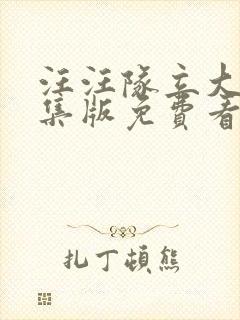 汪汪隊立大
集版免費看
扎丁頓熊